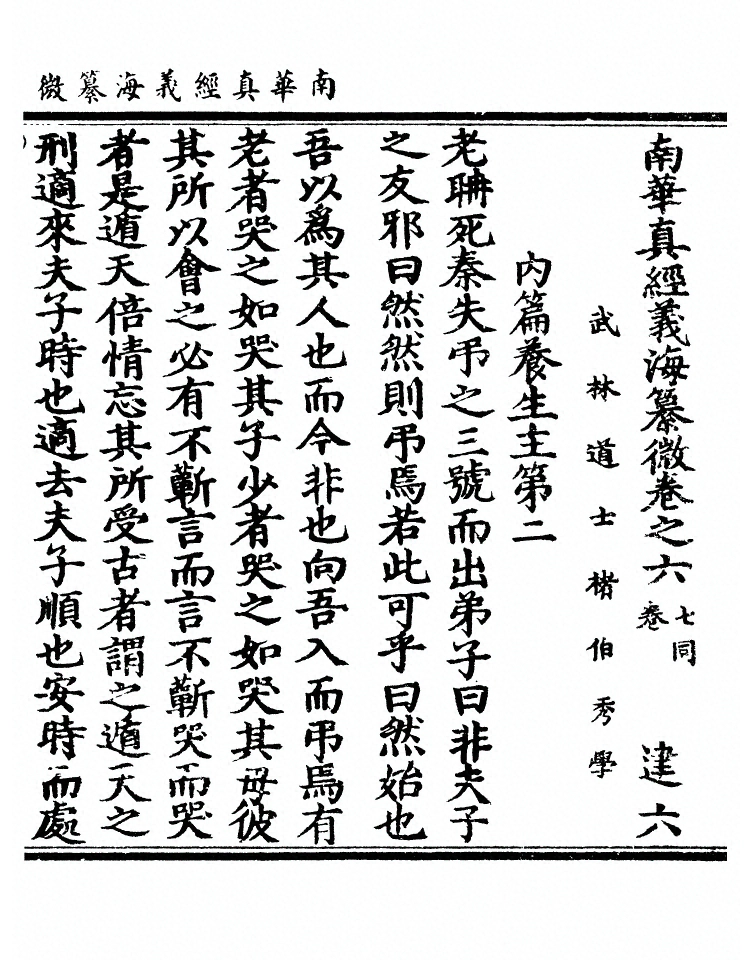 南華真經義海纂微
南華真經義海纂微卷之六 七同卷 建六
武林道士褚伯秀學
内篇養生主第二
老聃死秦失弔之三號而出弟子曰非夫子
之友邪曰然然則弔焉若此可乎曰然始也
吾以爲其人也而今非也向吾入而弔焉有
老者哭之如哭其子少者哭之如哭其母彼
其所以會之必有不蘄言而言不蘄哭而哭
者是遁天倍情忘其所受古者謂之遁天之
刑適來夫子時也適去夫子順也安時而處